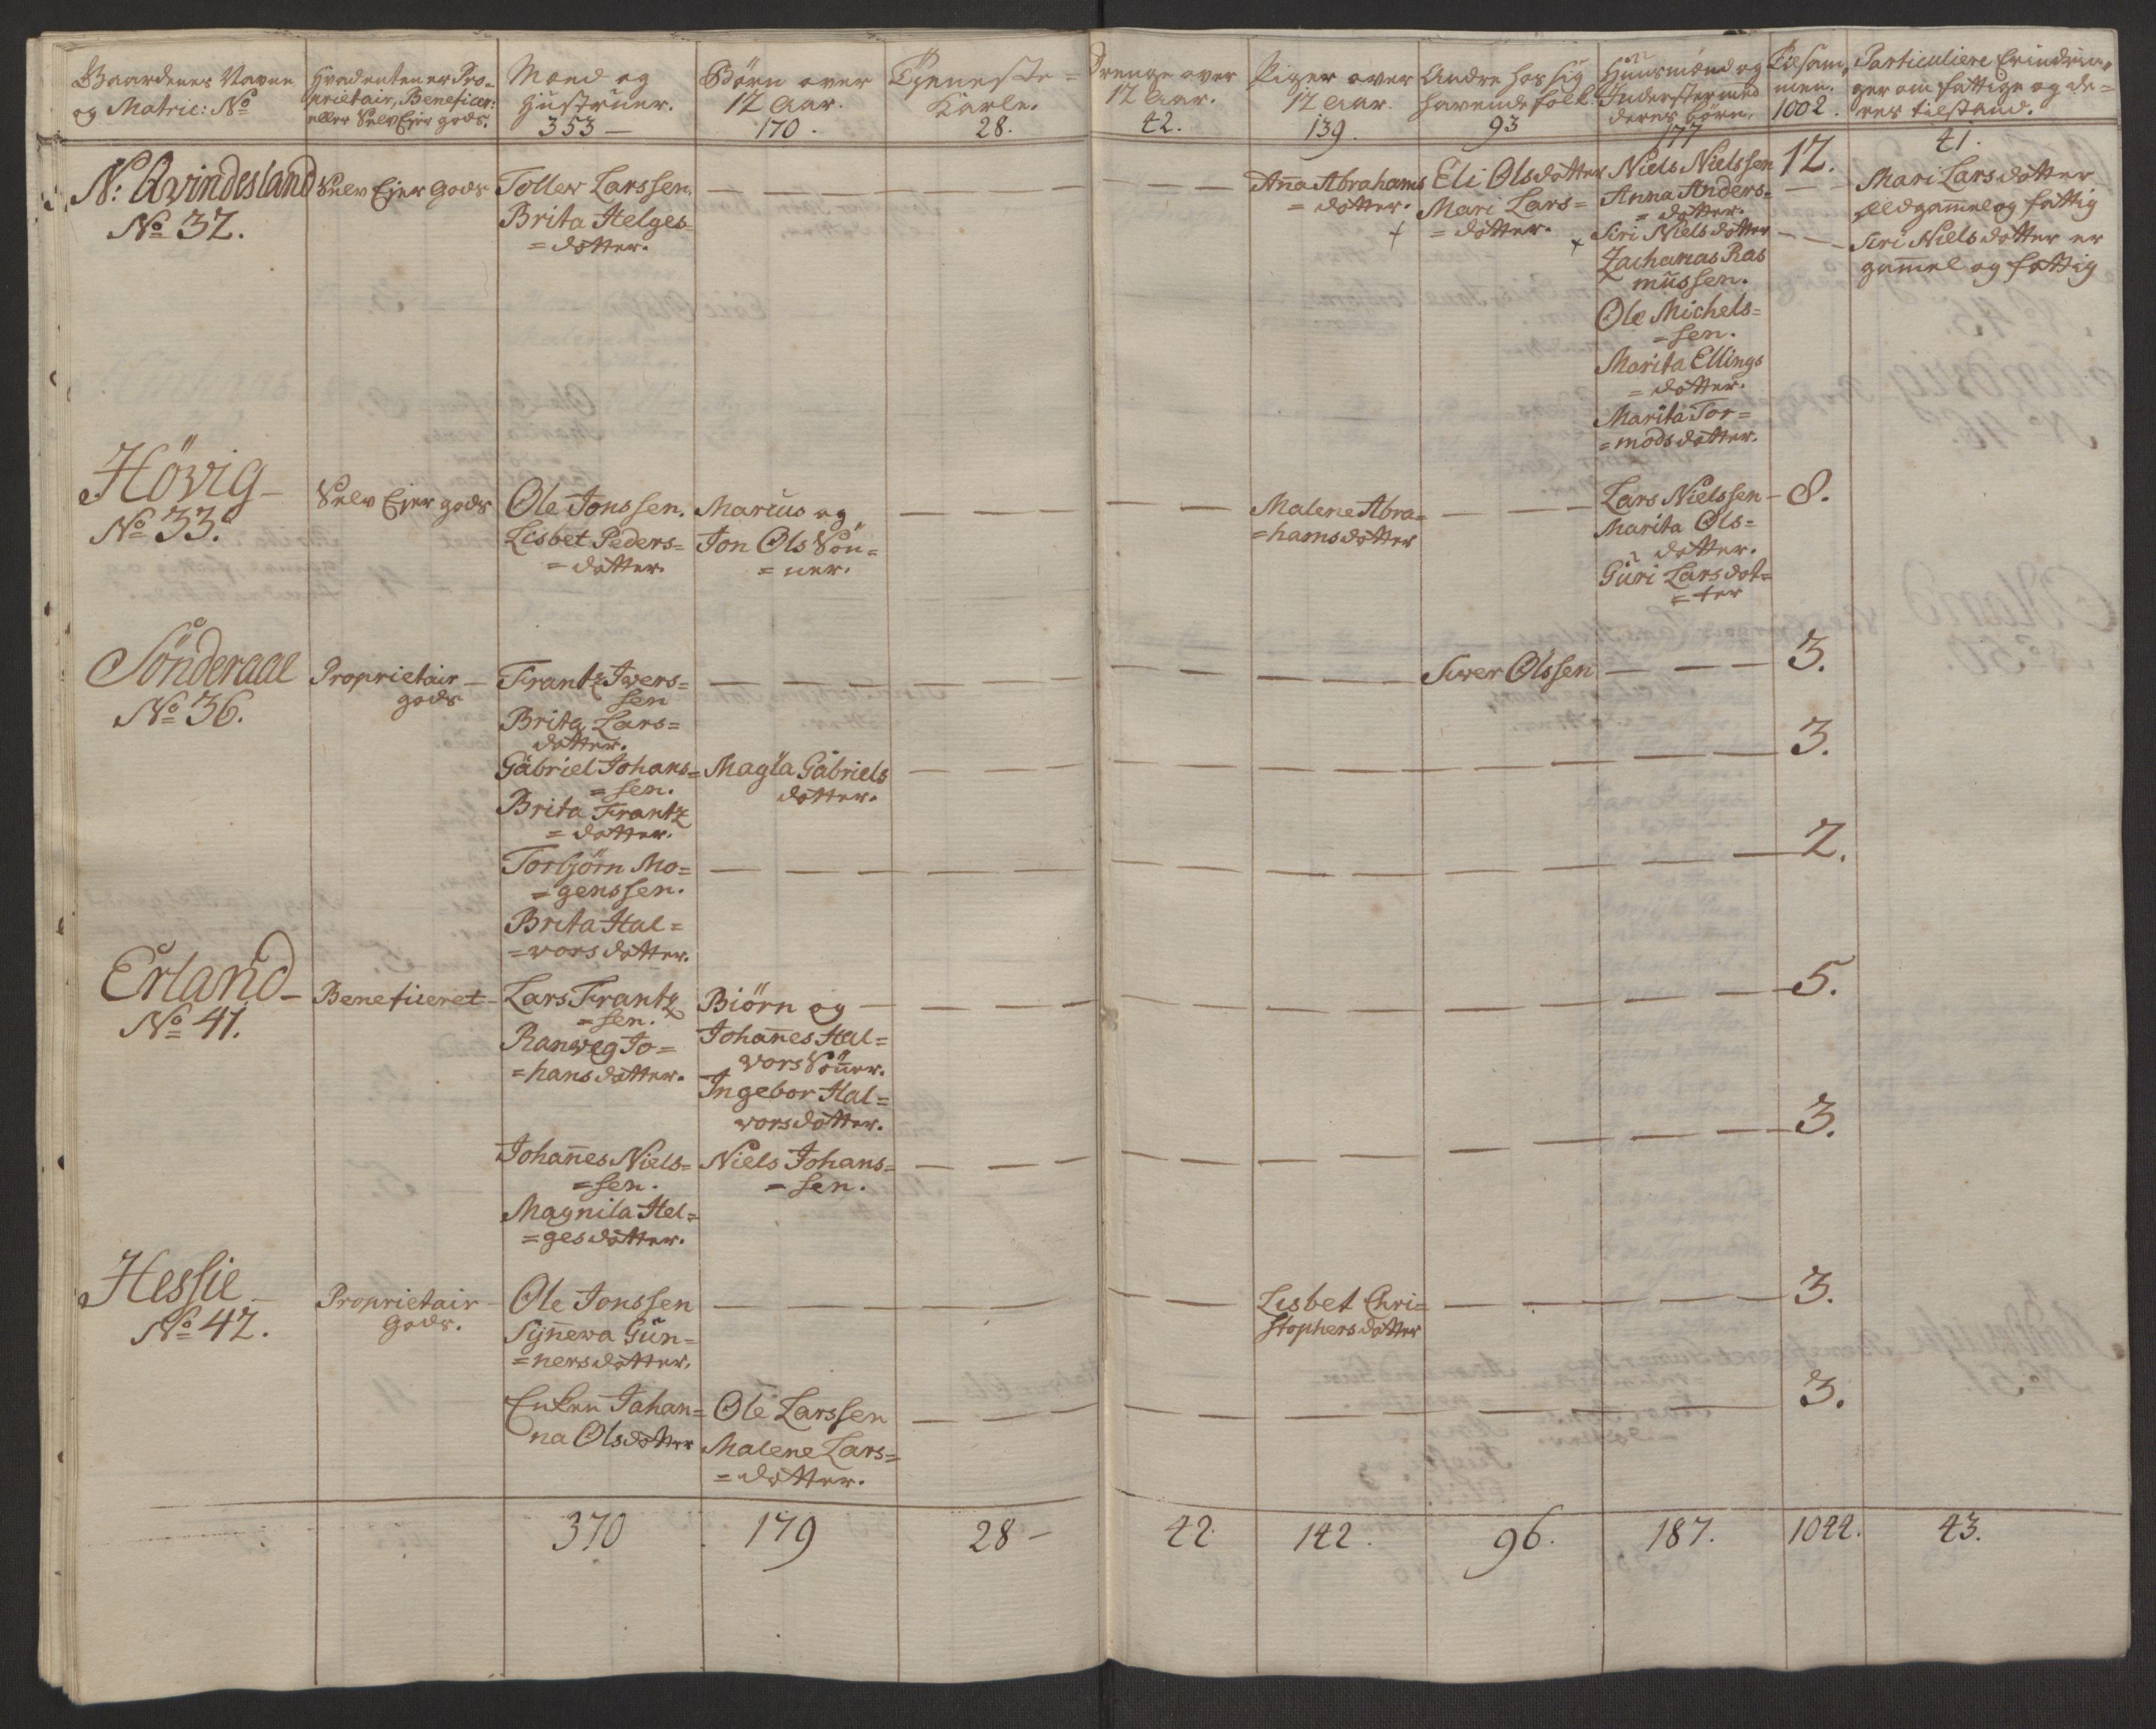 Gaardenes Navne
og Matric: No
Hvadenten er Pro-
prietair, Beneficer:
eller Selv Ejer gods.
Mænd og
Hustruer.
353 —
Börn over
12 Aar.
170.
Tjeneste=
Karle.
28.
Drenge over
12 Aar.
42.
Piger over
12 Aar.
139.
Andre hos sig
havende folk.
93
Huusmænd og
Inderster med
deres börn.
177
Tilsam„
men.
1002.
Particuliere Erindrin„
ger om fattige og de=
res tilstand.
41.
N: Qvindesland
No 32.
Selv Ejer Gods
Toller Larssen.
Brita Helges
= dotter.
Anna Abrahams
= dotter.
Eli Olsdotter
Mari Lars=
= dotter.
Niels Nielssen
Anna Anders=
= dotter.
Siri Nielsdotter
Zacharias Ras
mussen.
Ole Michels=
= sen.
Marita Ellings
= dotter.
Marita Tor=
= modsdotter.
12.
Mari Larsdotter
Eldgammel og fattig
Siri Nielsdotter er
gammel og fattig
Hövig
No 33.
Selv Ejer gods
Ole Jonssen.
Lisbet Peders=
= dotter.
Marcus og
Jon Ols Sön=
= ner.
Malene Abra=
= hamsdotter
Lars Nielssen
Marita Ols=
dotter.
Guri Larsdot=
= ter
8.
Sönderaae
No 36.
Proprietair
gods
Frantz Ivers=
sen
Brita Lars=
dotter.
Siver Olssen
3.
Gabriel Johans=
= sen.
Brita Frantz
= dotter.
Magla Gabriels
dotter.
3.
Torbjörn Mo=
= genssen.
Brita Hal=
= vorsdotter.
2.
Erland
No 41.
Beneficeret
Lars Frantz
= sen.
Ranveg Jo=
= hansdotter.
Biörn og
Johannes Hal=
vors Sönner.
Ingebor Hal=
vorsdotter.
5.
Johannes Niels=
= sen.
Magnila Hel=
= gesdotter.
Niels Johans=
= sen.
3.
Hessie
No 42.
Proprietair
Gods.
Ole Jonssen
Synneva Gun=
= nersdotter.
Lisbet Chri=
stophersdotter
3.
Enken Johan=
na Olsdotter
Ole Larssen
Malene Lars=
= dotter.
3.
370
179
28 —
42
142.
96.
187.
1044.
43.